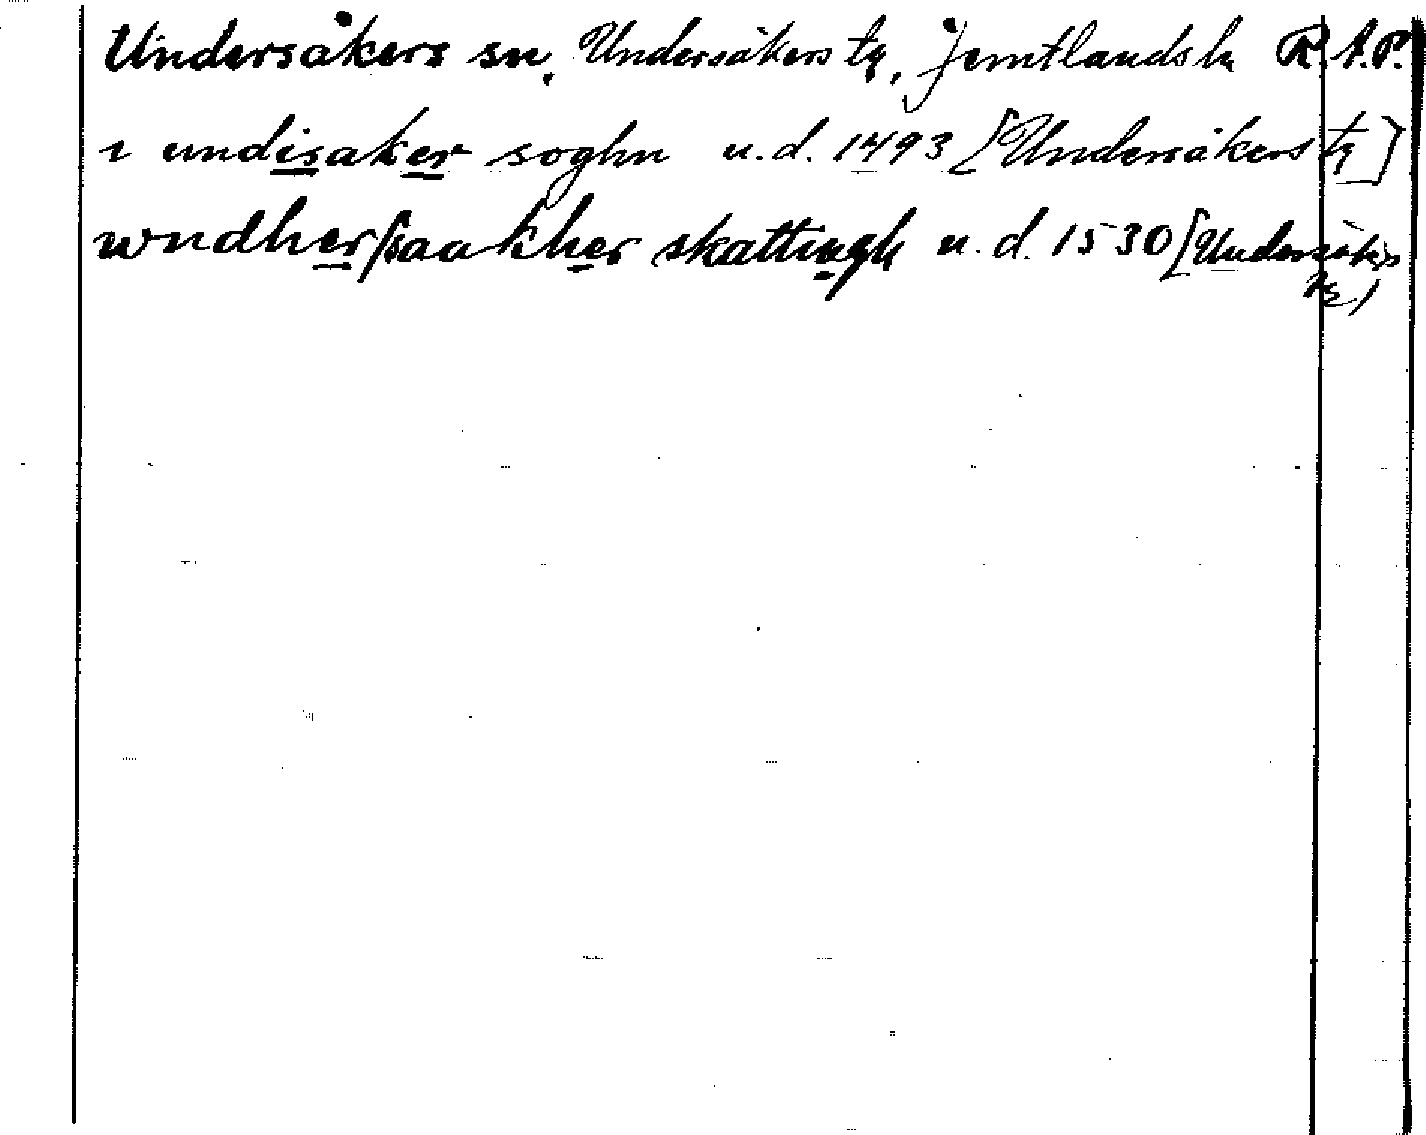 Undersåkers sn, Undersåkers tg, Jemtlands l. R.A.P.
i undisaker soghn u.d. 1493 [Undersåkers tg]
wndherssaakher skattingh u.d. 1530 [Undersåkers
tg]